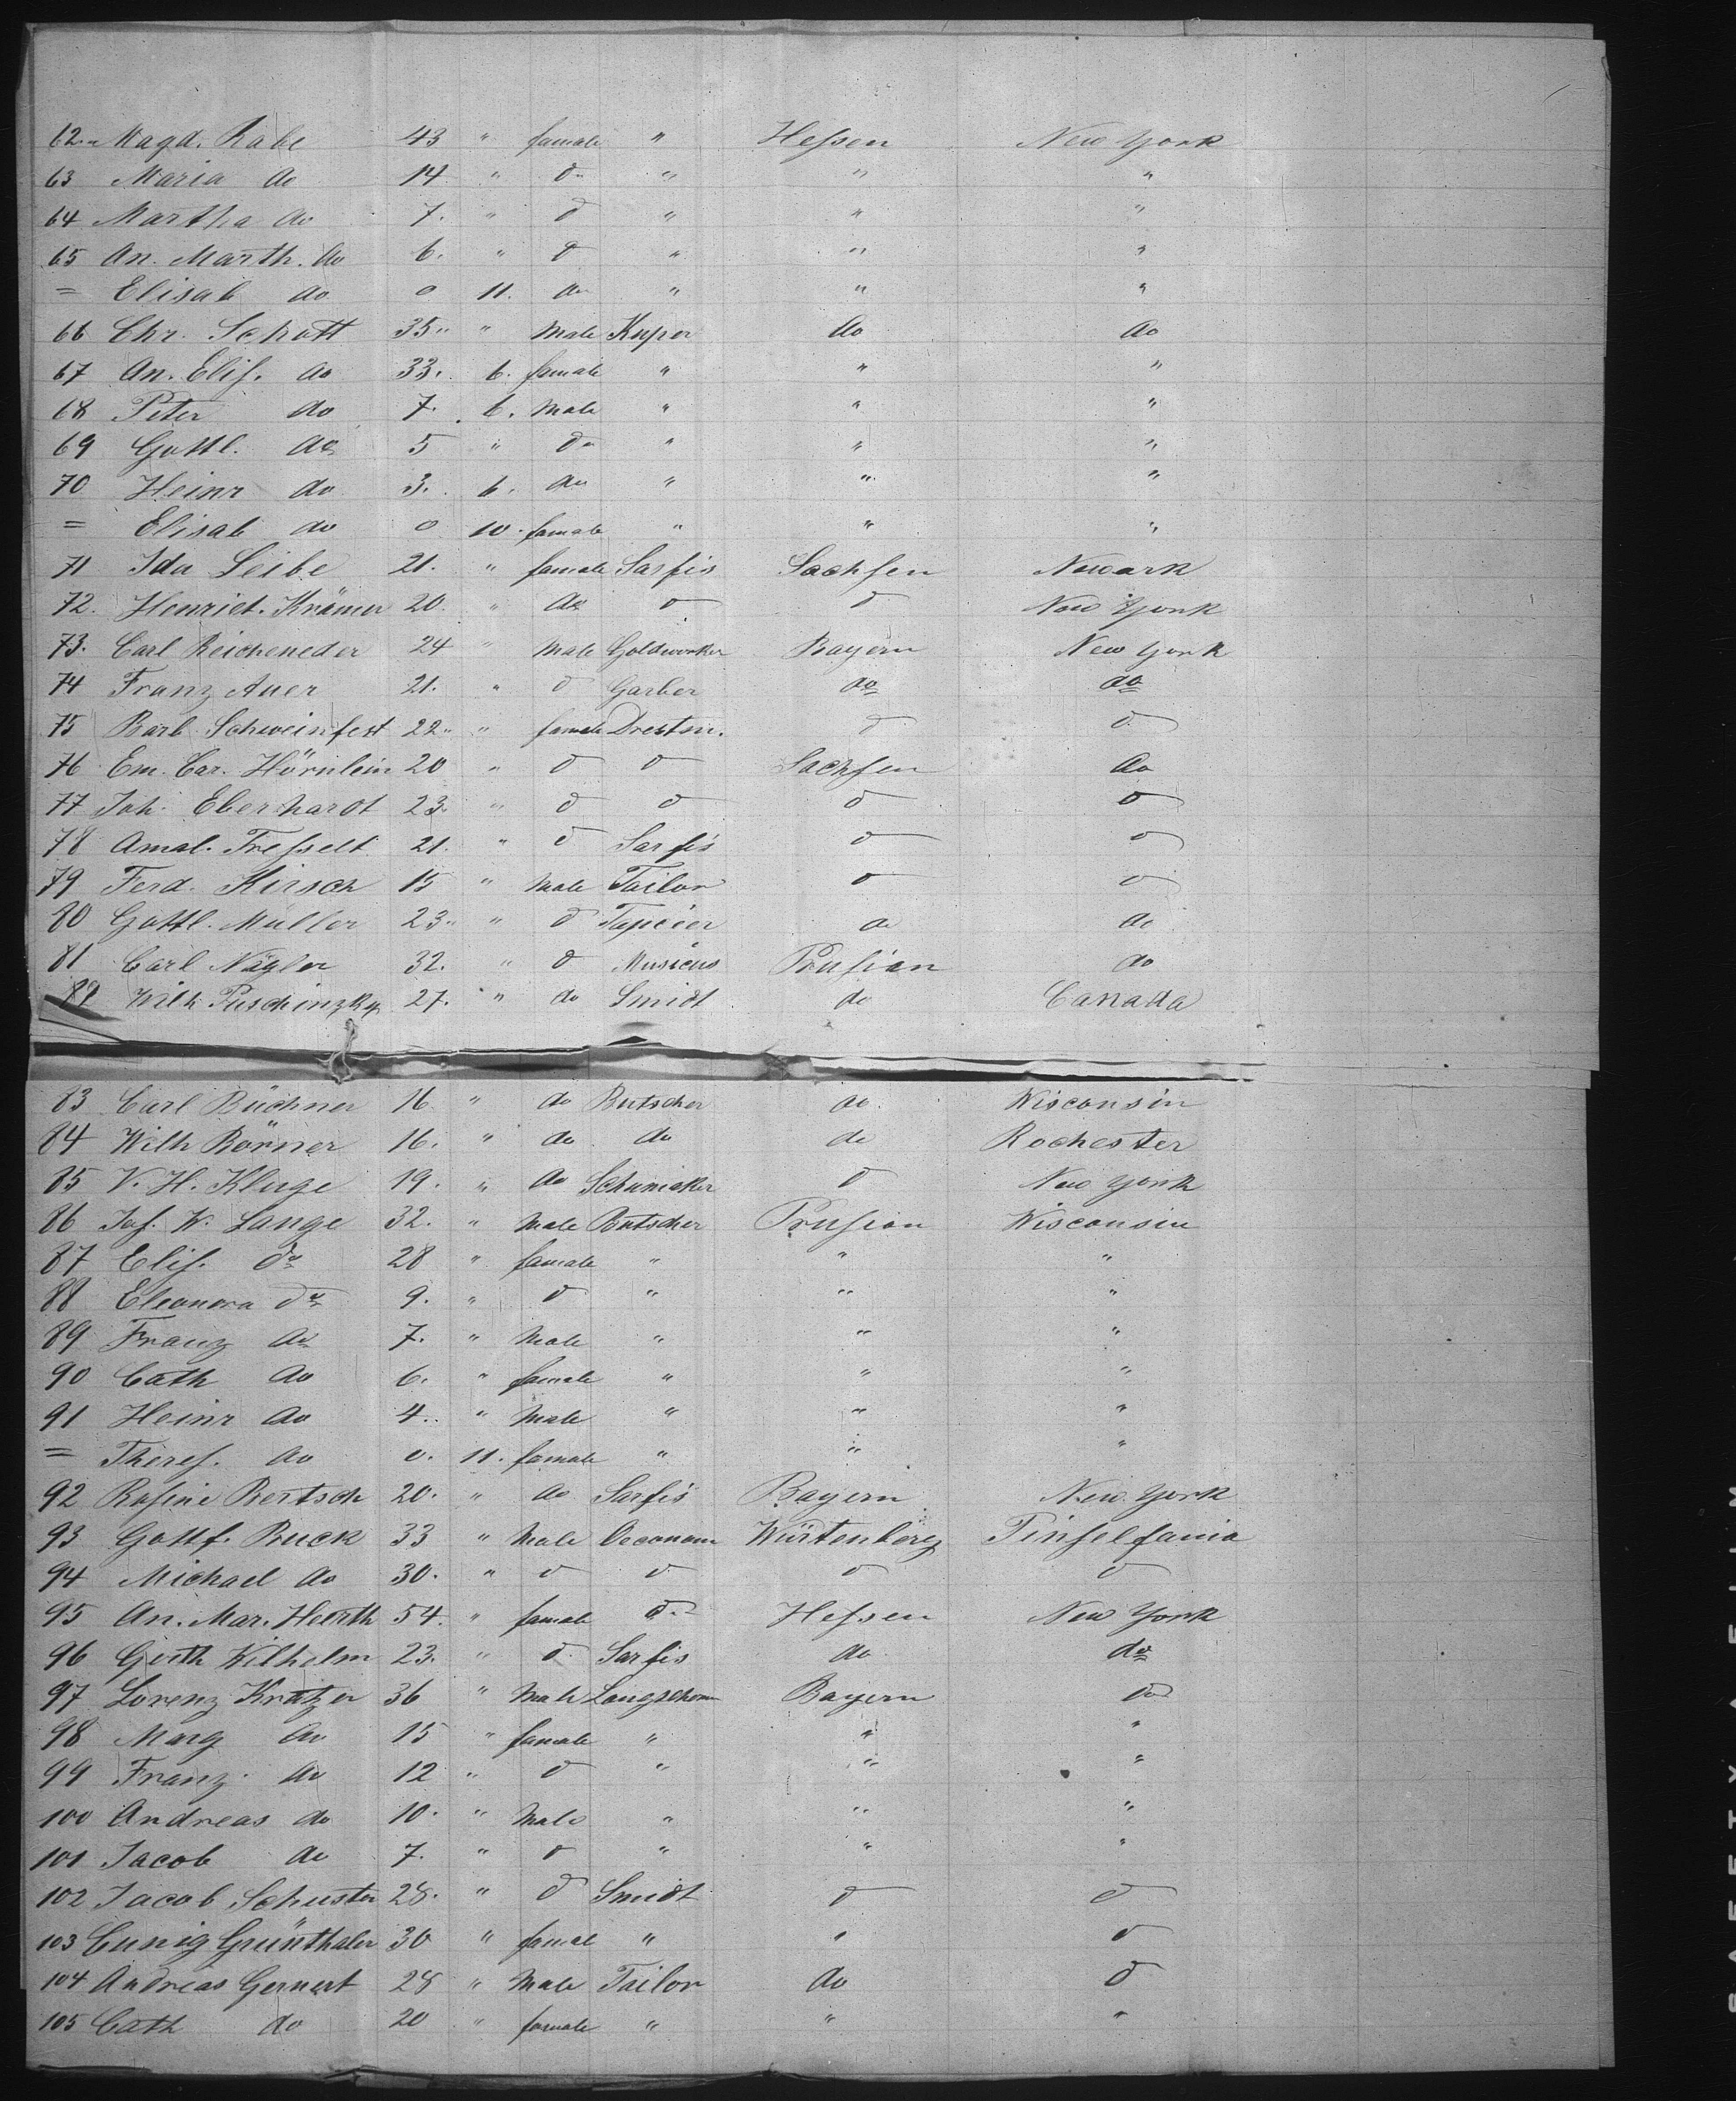 62 Magd. Rabe 43 " famale " Hessen New York
63 Maria do 14 " do " " "
64 Martha do 7. " d " " "
65 An. Marth. do 6. " d " " "
= Elisab do 0 11. do " " "
66 Chr. Schott 35 " Male Kuper do do
67 An. Elis. do 33. 6. famale " " "
68 Peter do 7. 6. Male " " "
69 Gottl. do 5 " do " " "
70 Heinr do 3. 6. do " " "
= Elisab do 0 10. famale " " "
71 Ida Leibe 21. " famale Sarfis Sachsen Newark
72. Henriet. Krämer 20. " do d d New York
73. Carl Reicheneder 24 " Male Goldworker Bayern New York
74 Franz Auer 21. " d Garber do do
75 Barb Schweinfest 22 " famale d d
76 Em. Car. Hörnlein 20 " d d Sachsen do
77 Joh. Eberhardt 23. " d d d d
78 Amal. Fresselt 21. " d Sarfis d d
79 Ferd. Hirsch 15 " Male Tailor d d
80 Gottl. Müller 23 " d Tapeier do do
81 Carl Nägler 32. " d Musicus Prusian do
82 Wilh Puschinzky 27. " do Smidt do Canada
83 Carl Büchner 16 " do Butscher do. Wisconsin
84 Wilh Börner 16. " do do do Rochester
85 V. H. Kluge 19. " do Schumaker d New York
86 Jos. W. Lange 32. " Male Butscher Prusian Wisconsin
87 Elis. do 28 " famale " " "
88 Eleonora do 9. " d " " "
89 Franz do 7. " Male " " "
90 Cath do 6. " famale " " "
91 Heinr do 4. " Male " " "
= Theres. do 0. 11. famale " " "
92 Rosine Bertsch 20. " do Sarfis Bayern New York
93 Gottf. Buck 33 " Male Oeconom Würtenberg Pinsilfania
94 Michael do 30. " d d d d
95 An. Mar. Heerth 54. " famale d. Hessen New York
96 Gerth Wilhelm 23. " d. Sarfis do do
97 Lorenz Kratzer 36 " Male Bayern do
98 Marg do 15 " famale " " "
99 Franz. do 12 " d " " "
100 Andreas do 10. " Male " " "
101 Jacob do 7. " d " " "
102 Jacob Schuster 28. " d Smidt d d
103 Cunig Grünthaler 30 " famal " " d
104 Andreas Gernert 28 " Male Tailor do d
105 Cath do 20 " famale " " "